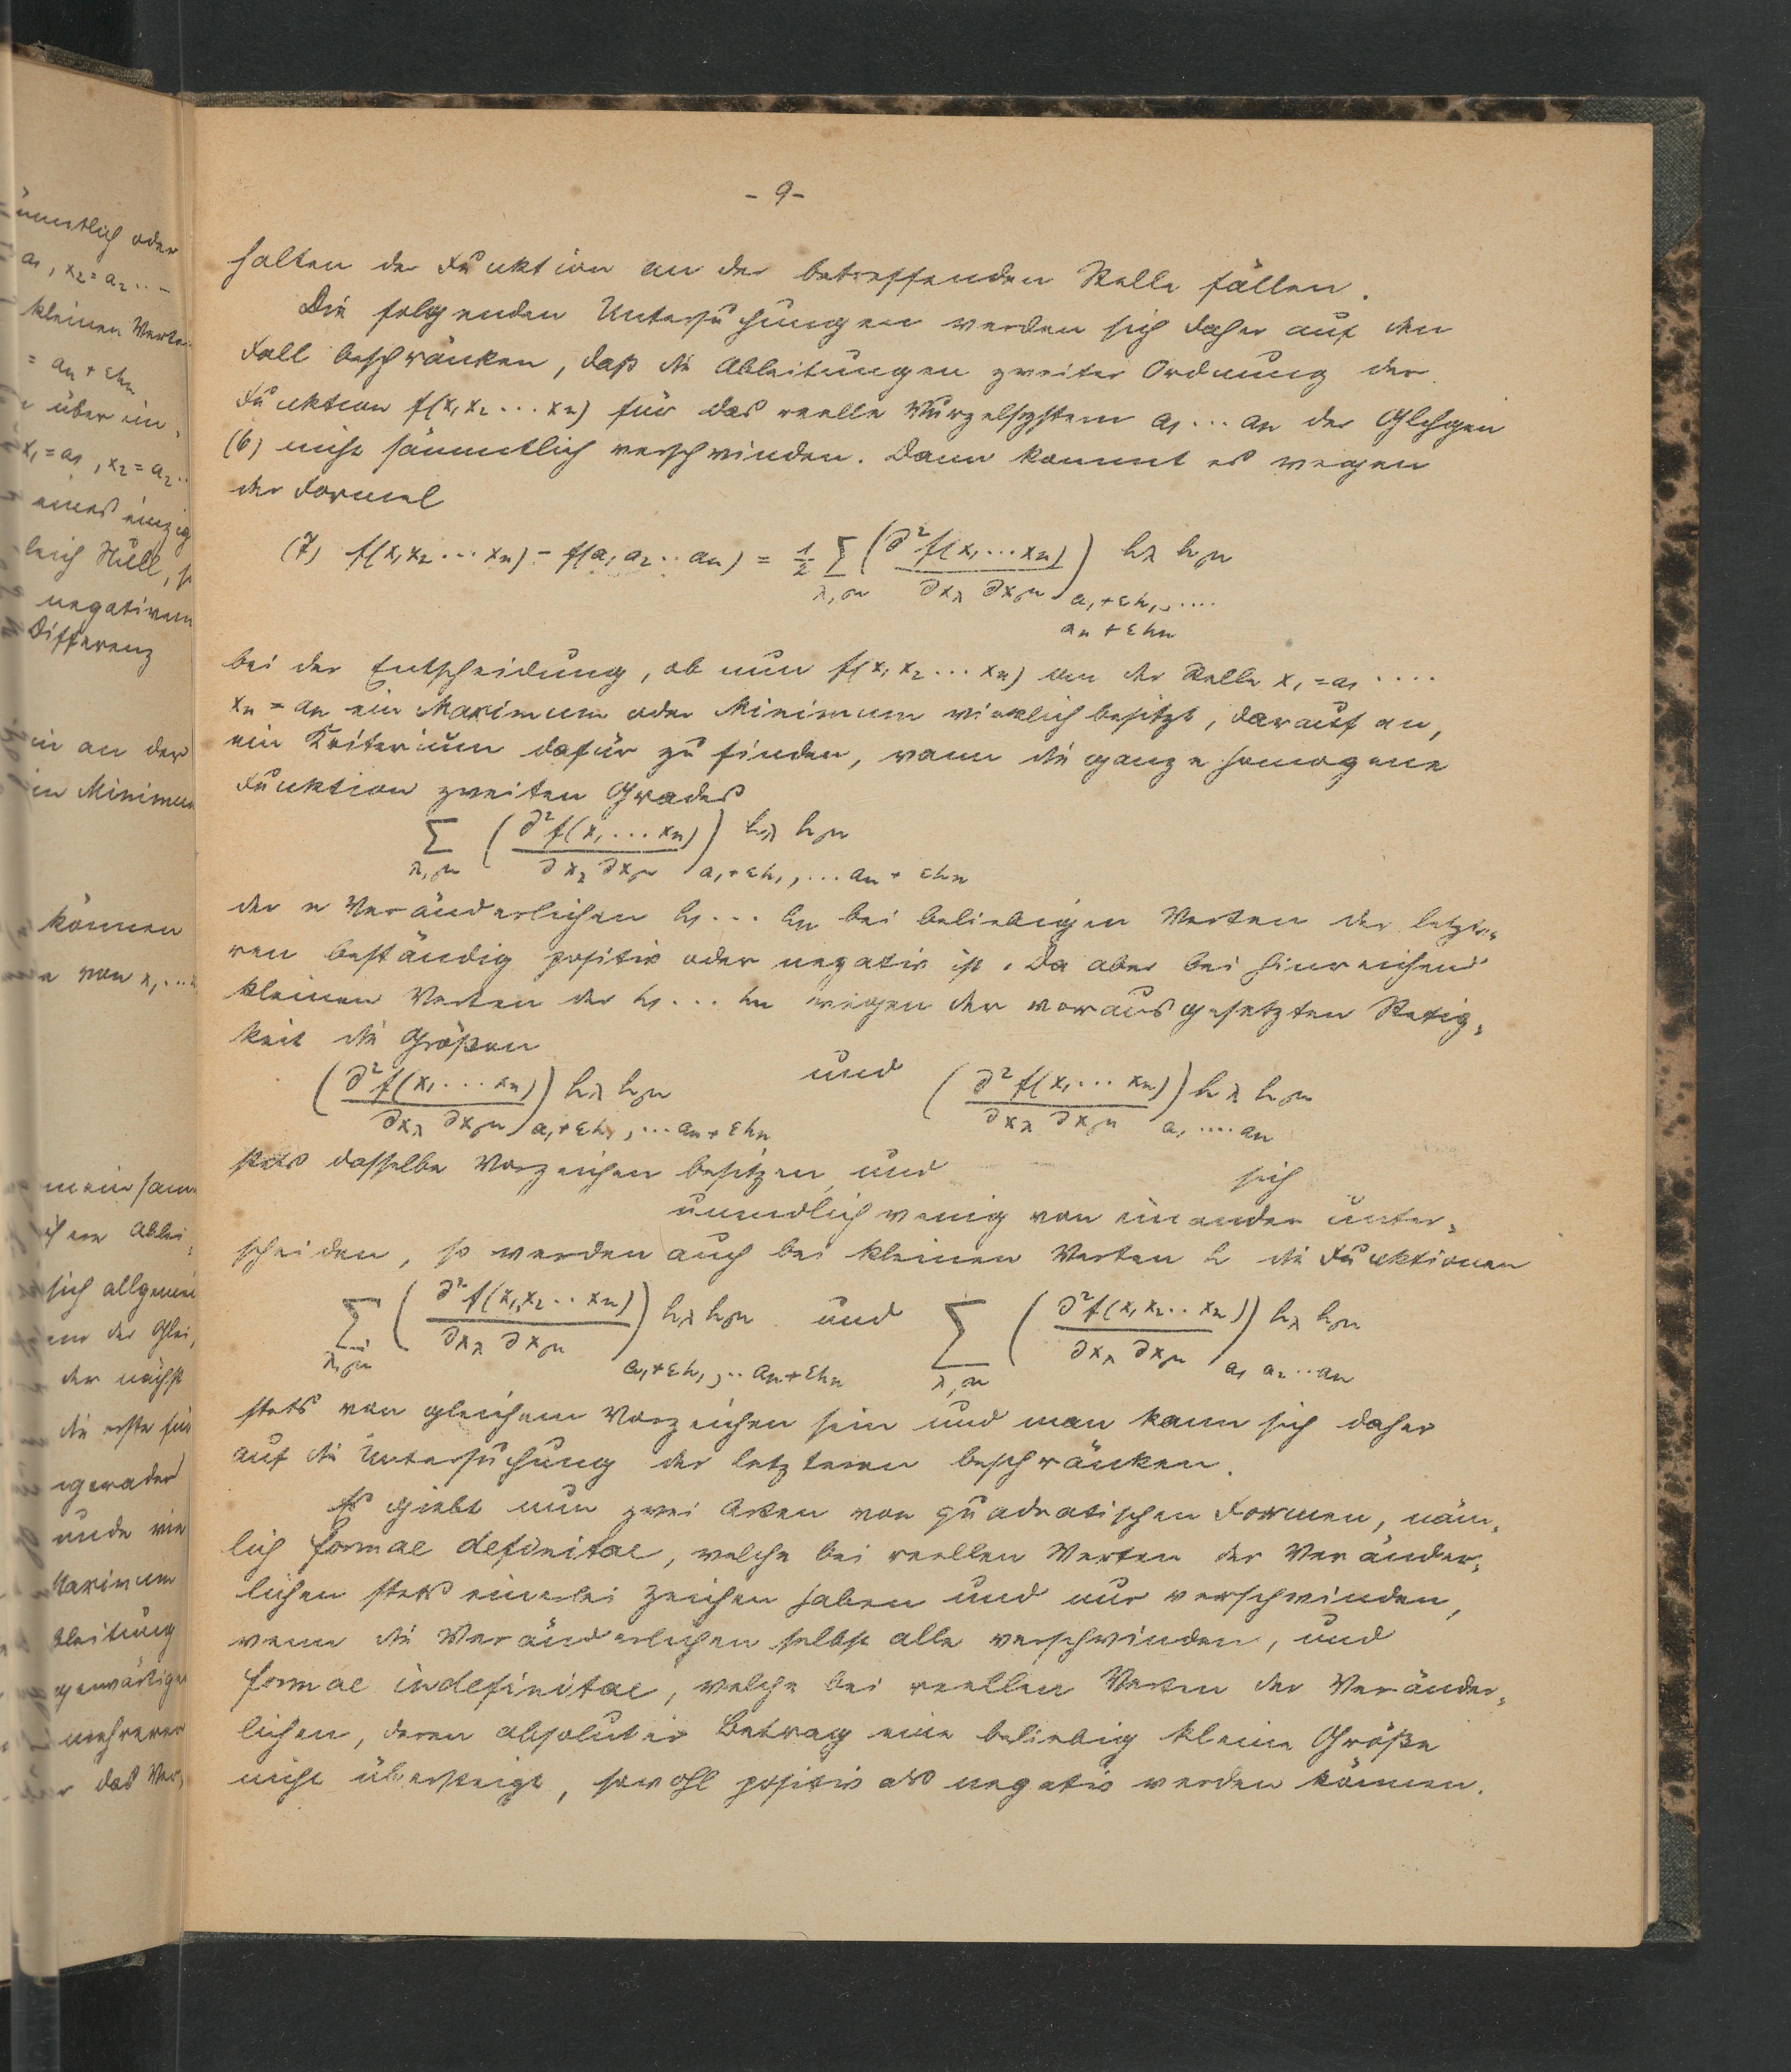 ämmtlich oder
a₁, x₂ = a₂ ...
kleinen Werte
= aₙ + εhₙ
über ein
x₁ = a₁, x₂ = a₂ ..
eines einzig
leich Null, s
negativem
Differenz
in an der
in Minimum
können
e von x, ...
meinsam
ich
sich allgemein
der Glei-
der nächst
die erste für
ngerader
unde wie
Maximum
bleitung
genwärtigen
mehreren
r das Ver-
- 9 -
halten der Funktion an der betreffenden Stelle fällen.
Die folgenden Untersuchungen werden sich daher auf den
Fall beschränken, daß die Ableitungen zweiter Ordnung der
Funktion f(x₁ x₂ ... xₙ) für das reelle Wurzelsystem a₁ ... aₙ der Glchgen
(6) nicht sämmtlich verschwinden. Dann kommt es wegen
der Formel
(7) f(x₁ x₂ ... xₙ) - f(a₁ a₂ .. aₙ) = 1/2 Σ_{λ,μ} (∂²f(x₁ ... xₙ) / ∂x_λ ∂x_μ)_{a₁+εh₁, .... aₙ+εhₙ} h_λ h_μ
bei der Entscheidung, ob nun f(x₁ x₂ ... xₙ) an der Stelle x₁ = a₁ ....
xₙ = aₙ ein Maximum oder Minimum wirklich besitzt, darauf an,
ein Kriterium dafür zu finden, wann die ganze homogene
Funktion zweiten Grades
Σ_{λ,μ} (∂²f(x₁ ... xₙ) / ∂x_λ ∂x_μ)_{a₁+εh₁, ... aₙ+εhₙ} h_λ h_μ
der n Veränderlichen h₁ ... hₙ bei beliebigen Werten der letzte-
ren beständig positiv oder negativ ist. Da aber bei hinreichend
kleinen Werten der h₁ ... hₙ wegen der vorausgesetzten Stetig-
keit die Größen
(∂²f(x₁ ... xₙ) / ∂x_λ ∂x_μ)_{a₁+εh₁, ... aₙ+εhₙ} h_λ h_μ und (∂²f(x₁ ... xₙ) / ∂x_λ ∂x_μ)_{a₁ .... aₙ} h_λ h_μ
stets dasselbe Vorzeichen besitzen und sich
unendlich wenig von einander unter-
scheiden, so werden auch bei kleinen Werten h die Funktionen
Σ_{λ,μ} (∂²f(x₁, x₂ .. xₙ) / ∂x_λ ∂x_μ)_{a₁+εh₁, .. aₙ+εhₙ} h_λ h_μ und Σ_{λ,μ} (∂²f(x₁ x₂ .. xₙ) / ∂x_λ ∂x_μ)_{a₁ a₂ .. aₙ} h_λ h_μ
stets von gleichem Vorzeichen sein und man kann sich daher
auf die Untersuchung der letzteren beschränken.
Es giebt nun zwei Arten von quadratischen Formen, näm-
lich formae definitae, welche bei reellen Werten der Veränder-
lichen stets einerlei Zeichen haben und nur verschwinden,
wenn die Veränderlichen selbst alle verschwinden, und
formae indefinitae, welche bei reellen Werten der Veränder-
lichen, deren absoluter Betrag eine beliebig kleine Größe
nicht übersteigt, sowohl positiv als negativ werden können.